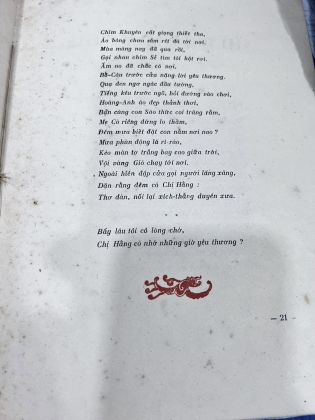 Chim Khuyên cất giọng thiết tha,
Áo bông chưa sắm rét đà tới nơi.
Mùa màng nay đã qua rồi,
Gọi nhau chim Sẻ tìm tòi hột rơi.
Ấm no đã chắc có nơi,
Bồ-Câu trước cửa nặng lời yêu thương.
Quạ đen ngơ ngác đầu tường,
Tiếng kêu trước ngõ, hỏi đường vào chơi,
Hoàng-Anh áo đẹp thảnh thơi,
Bận cùng con Sáo thức coi trăng rằm,
Mẹ Cò riêng đứng lo thầm,
Đêm mưa biết đặt con nằm nơi nao ?
Mưa phùn động lá rì rào,
Kéo màn tơ trắng bay cao giữa trời,
Vội vàng Gió chạy tới nơi.
Ngoài hiên đập cửa gọi người láng xáng,
Dặn rằng đêm có Chị Hằng :
Thơ đàn, nối lại xích-thằng duyên xưa.
* *
Bấy lâu tôi có lòng chờ,
Chị Hằng có nhớ những giờ yêu thương ?
— 21 —